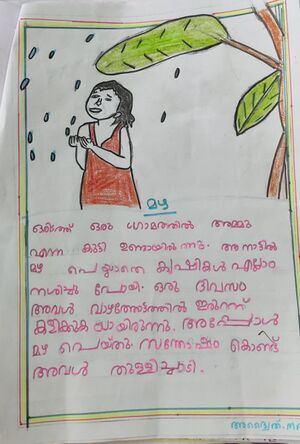 മഴ
ഒരിടത്ത് ഒരു ഗ്രാമത്തിൽ അമ്മു
എന്ന കുട്ടി ഉണ്ടായിരുന്നു. ആ നാട്ടിൽ
മഴ പെയ്യാതെ കൃഷികൾ എല്ലാം
നശിച്ചു പോയി. ഒരു ദിവസം
അവൾ വാഴത്തോട്ടത്തിൽ ഇരുന്ന്
കളിക്കുക യായിരുന്നു. അപ്പോൾ
മഴ പെയ്തു. സന്തോഷം കൊണ്ട്
അവൾ തുള്ളിച്ചാടി.
അദ്വൈത്.